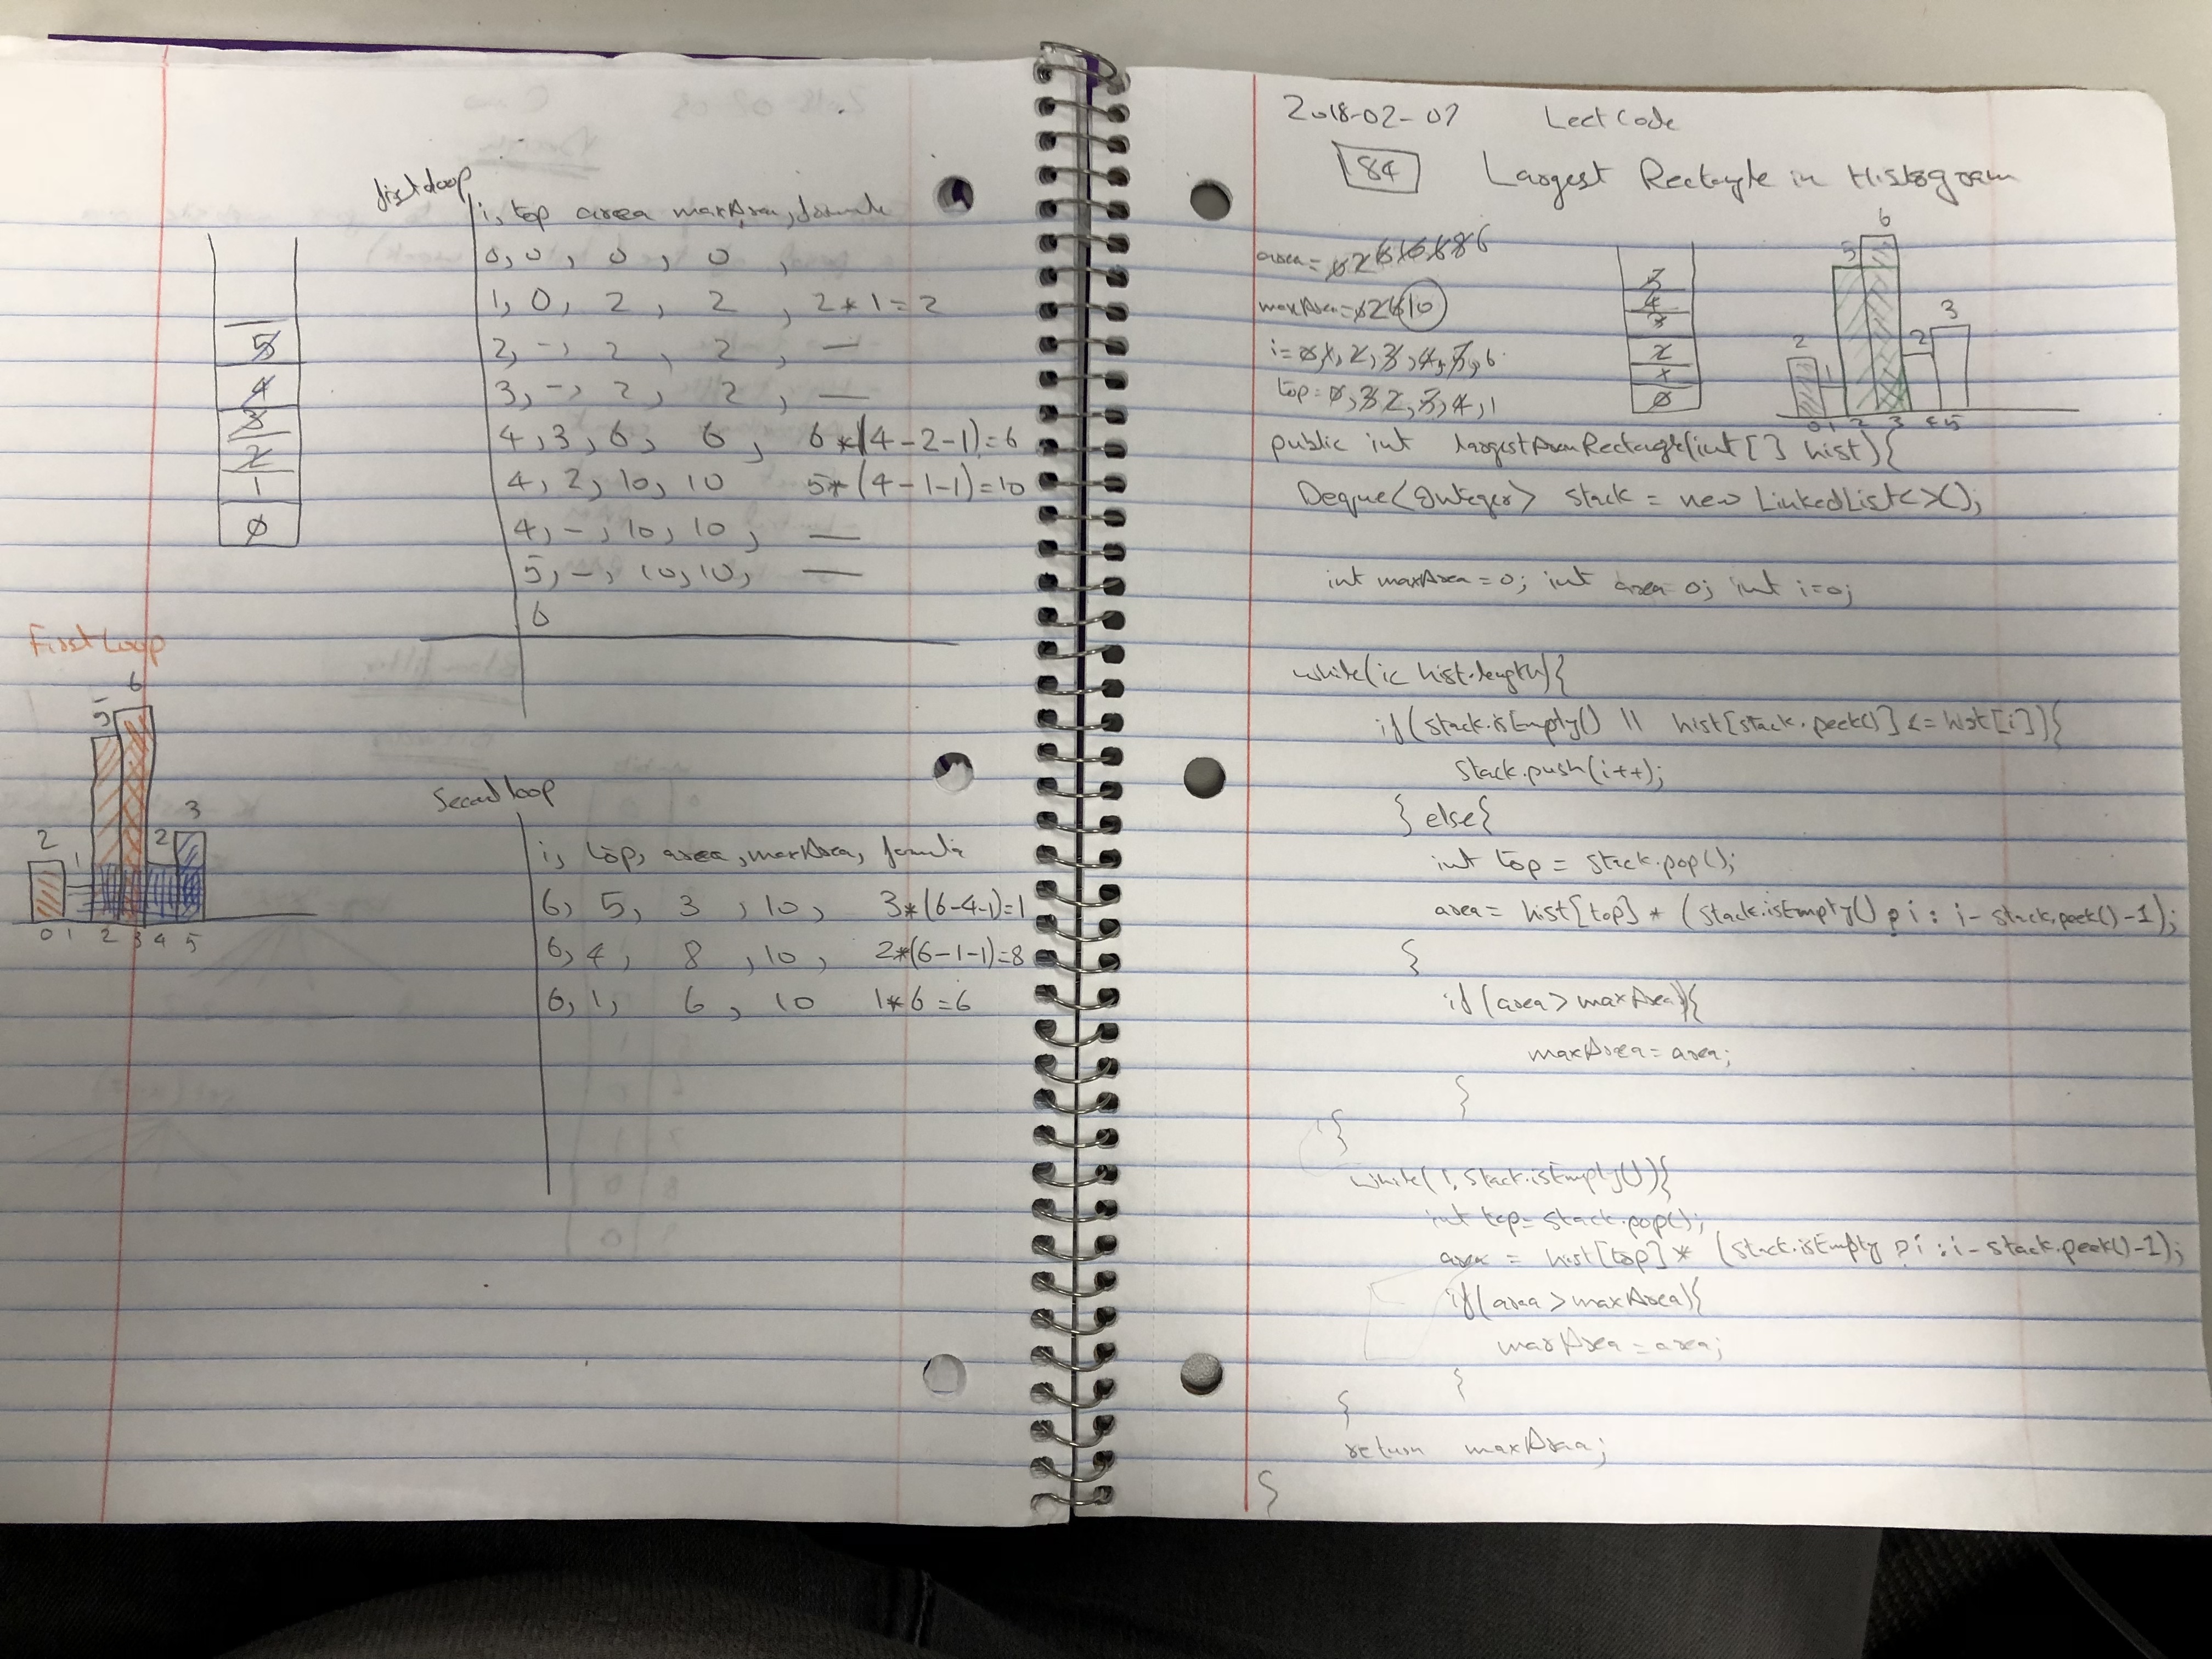 first loop
i, top area maxArea, formula
0, 0, 0, 0,
1, 0, 2, 2, 2*1=2
2, -, 2, 2, —
3, -, 2, 2, —
4, 3, 6, 6, 6*(4-2-1)=6
4, 2, 10, 10 5*(4-1-1)=10
4, -, 10, 10, —
5, -, 10, 10, —
6
5
4
3
2
1
0
First Loop
6
5
3
2 1 2
0 1 2 3 4 5
Second loop
i, top, area, maxArea, formula
6, 5, 3, 10, 3*(6-4-1)=1
6, 4, 8, 10, 2*(6-1-1)=8
6, 1, 6, 10 1*6=6
2018-02-07 LeetCode
84 Largest Rectangle in Histogram
area=
maxArea=0 2 6 10
i=0, 1, 2, 3, 4, 5, 6
top=0, 3 2, 5, 4, 1
5
4
3
2
1
0
6
5
3
2 1 2
0 1 2 3 4 5
public int largestAreaRectangle(int[] hist){
Deque<Integer> stack = new LinkedList<>();
int maxArea = 0; int area 0; int i=0;
while(i< hist.length){
if(stack.isEmpty() || hist[stack.peek()] <= hist[i]){
stack.push(i++);
} else{
int top = stack.pop();
area= hist[top] * (stack.isEmpty() ? i : i-stack.peek()-1);
}
if(area>maxArea){
maxArea = area;
}
}
while(!stack.isEmpty()){
int top= stack.pop();
area = hist[top] * (stack.isEmpty ? i : i-stack.peek()-1);
if(area >maxArea){
maxArea = area;
}
}
return maxArea;
}